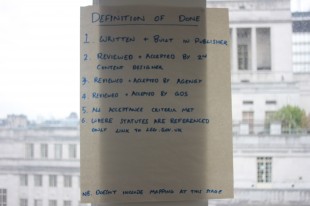 DEFINITION OF DONE
1. WRITTEN + BUILT IN PUBLISHER
2. REVIEWED + ACCEPTED BY 2ND
CONTENT DESIGNER
3. REVIEWED + ACCEPTED BY AGENCY
4. REVIEWED + ACCEPTED BY GDS
5. ALL ACCEPTANCE CRITERIA MET
6. WHERE STATUTES ARE REFERENCED
ONLY LINK TO LEG.GOV.UK
NB. DOESN'T INCLUDE MAPPING AT THIS POINT